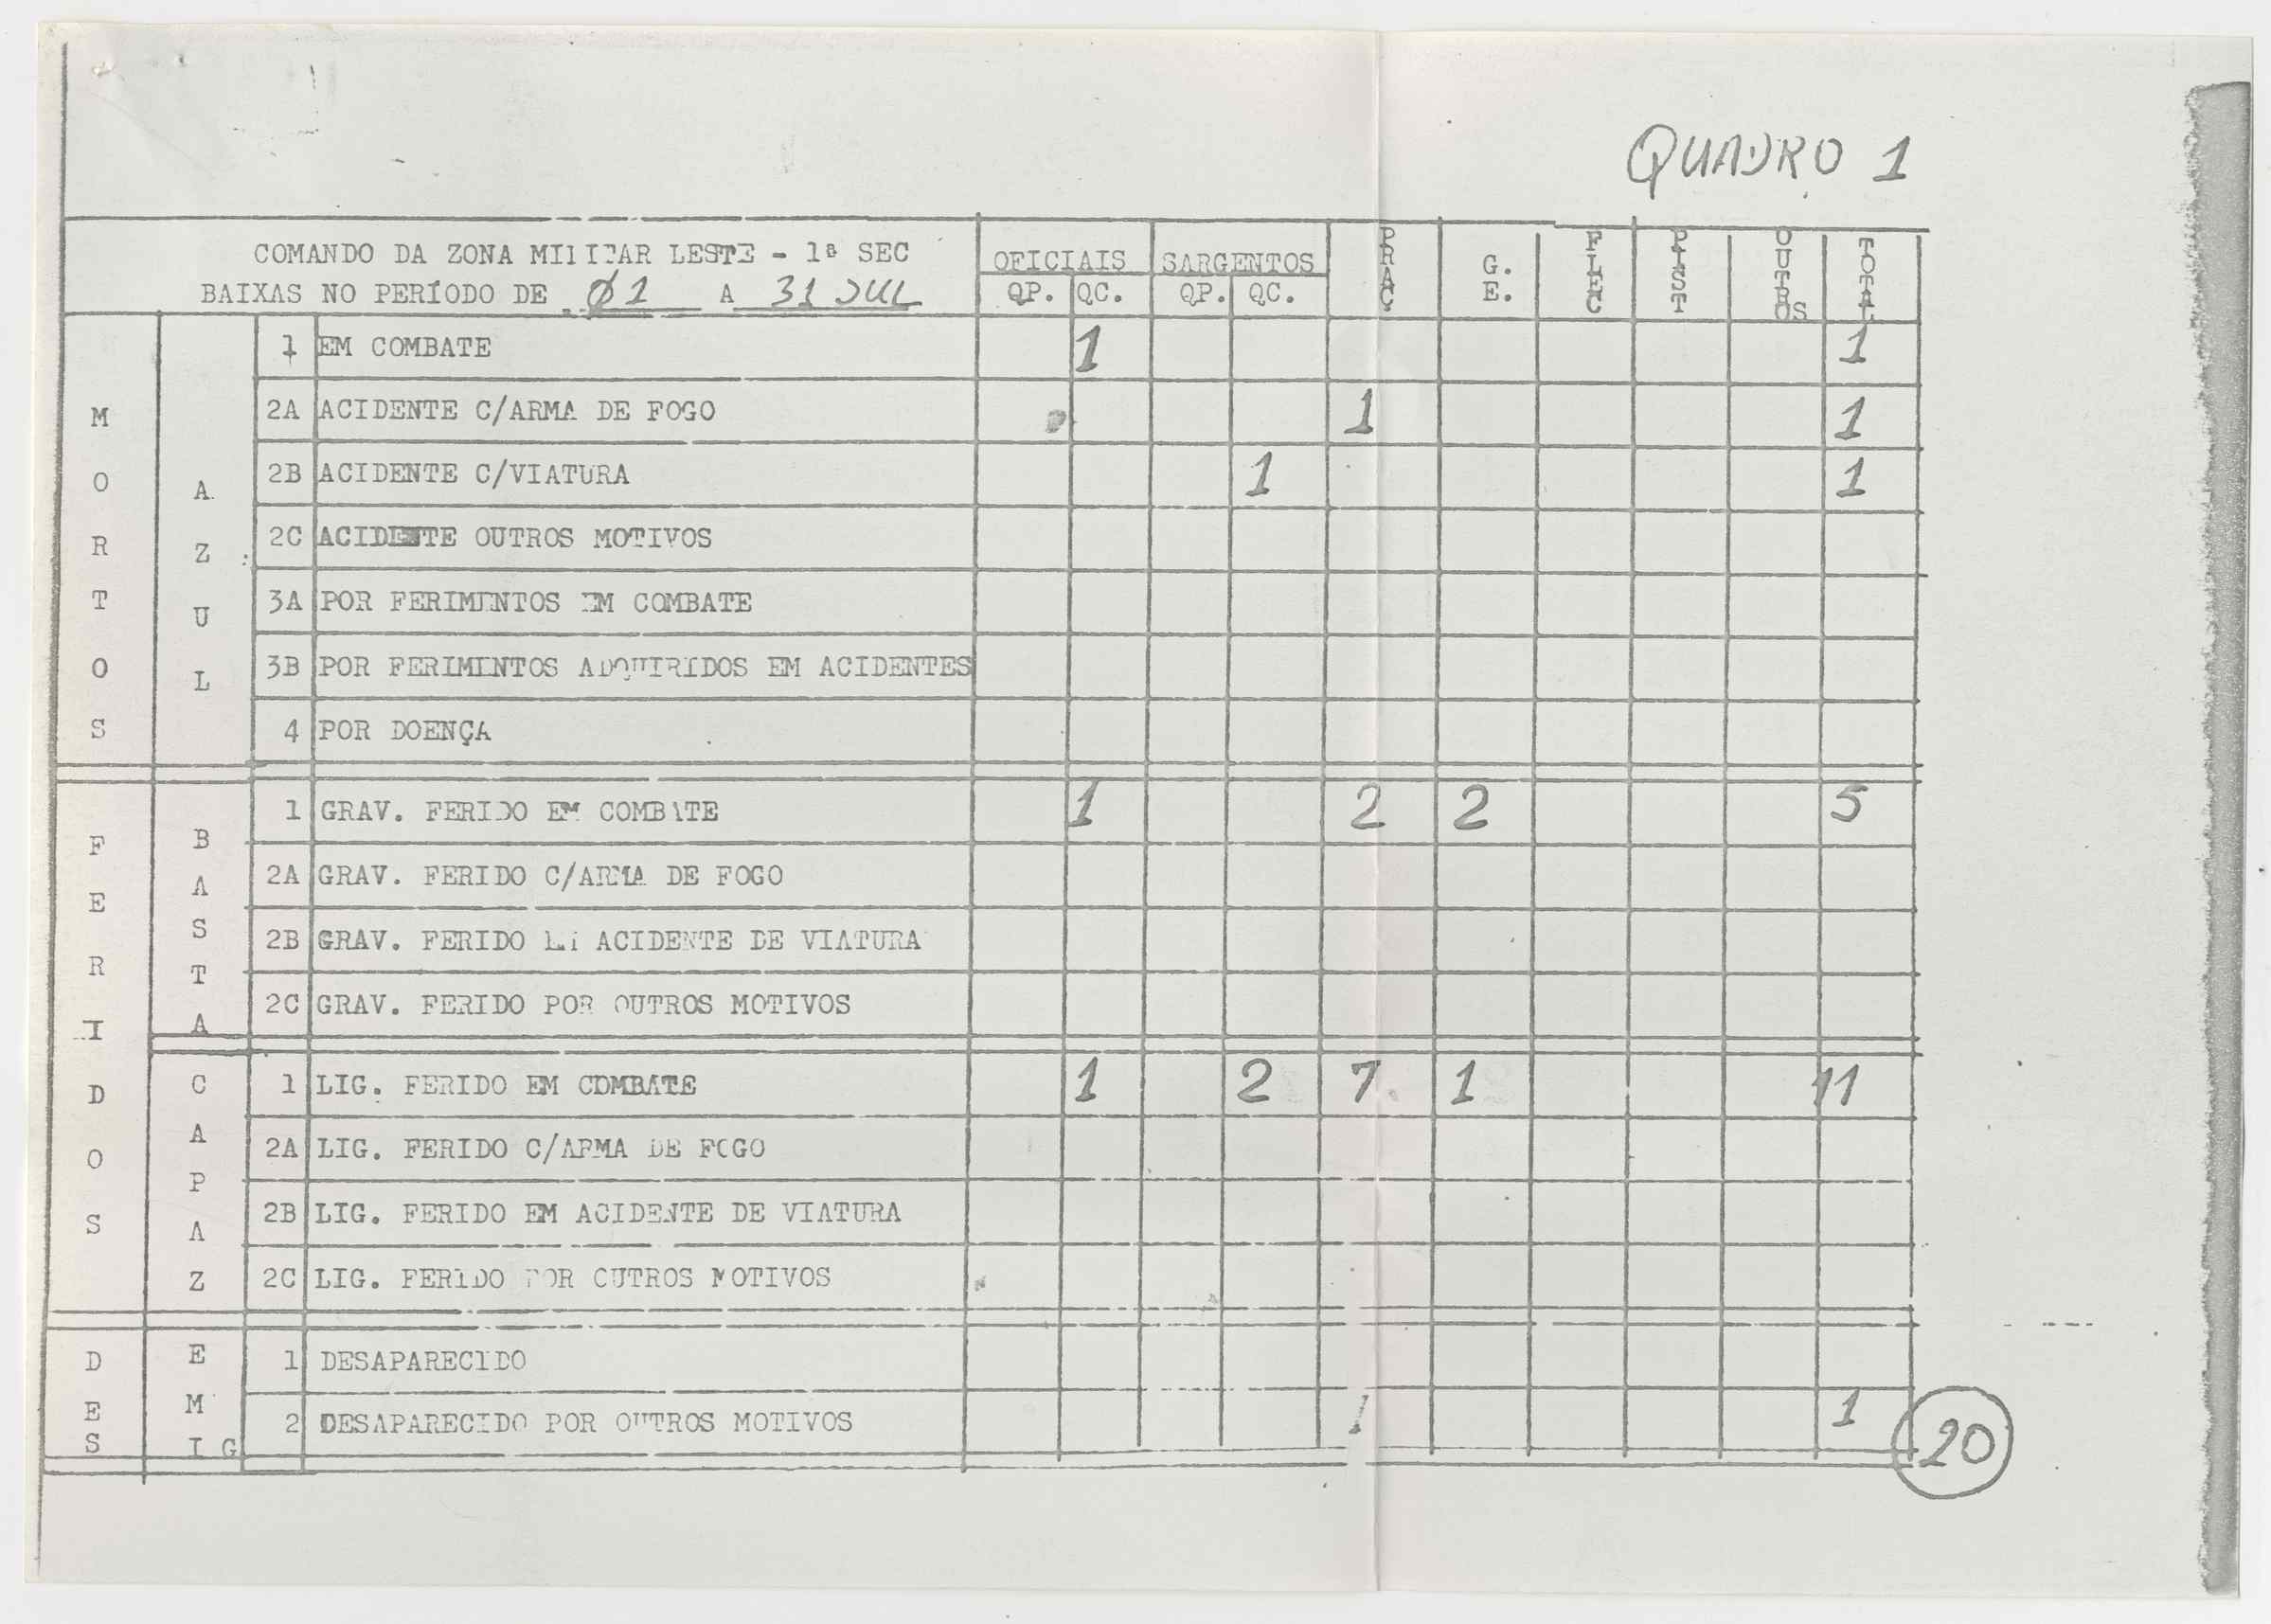 QUADRO 1
COMANDO DA ZONA MILITAR LESTE - 1ª SEC
BAIXAS NO PERÍODO DE Ø1 A 31 JUL
OFICIAIS SARGENTOS PRAÇ G. E. FLEC PIST OUTROS TOTAL
QP. QC. QP. QC.
MORTOS
AZUL
1 EM COMBATE 1 1
2A ACIDENTE C/ARMA DE FOGO 1 1
2B ACIDENTE C/VIATURA 1 1
2C ACIDENTE OUTROS MOTIVOS
3A POR FERIMENTOS EM COMBATE
3B POR FERIMENTOS ADQUIRIDOS EM ACIDENTES
4 POR DOENÇA
FERIDOS
BASTA
1 GRAV. FERIDO EM COMBATE 1 2 2 5
2A GRAV. FERIDO C/ARMA DE FOGO
2B GRAV. FERIDO EM ACIDENTE DE VIATURA
2C GRAV. FERIDO POR OUTROS MOTIVOS
CAPAZ
1 LIG. FERIDO EM COMBATE 1 2 7 1 11
2A LIG. FERIDO C/ARMA DE FOGO
2B LIG. FERIDO EM ACIDENTE DE VIATURA
2C LIG. FERIDO POR OUTROS MOTIVOS
DES
EMIG
1 DESAPARECIDO
2 DESAPARECIDO POR OUTROS MOTIVOS 1 1
20